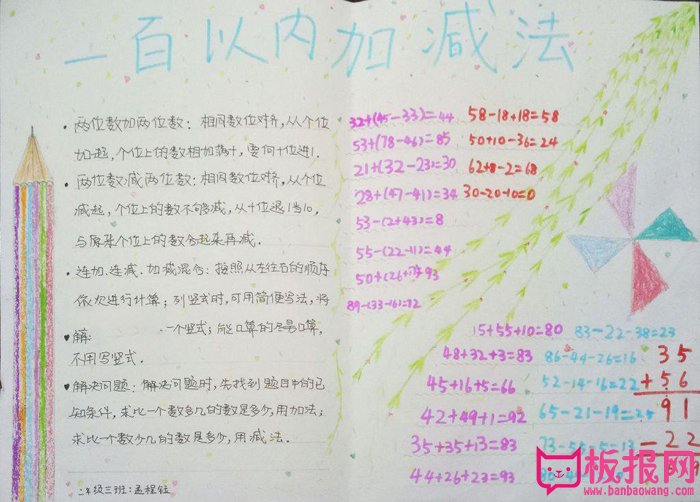 一百以内加减法
• 两位数加两位数：相同数位对齐，从个位
加起，个位上的数相加满十，要向十位进1.
• 两位数减两位数：相同数位对齐，从个位
减起，个位上的数不够减，从十位退1当10，
与原来个位上的数合起来再减.
• 连加、连减、加减混合：按照从左往右的顺序
依次进行计算；列竖式时，可用简便写法，将
解: 一个竖式；能口算的尽量口算，
不用写竖式.
• 解决问题：解决问题时，先找到题目中的已
知条件，求比一个数多几的数是多少，用加法；
求比一个数少几的数是多少，用减法.
二年级三班：孟程
32+(45-33)=44
53+(78-46)=85
21+(32-23)=30
28+(47-41)=34
53-(2+43)=8
55-(22-11)=44
50+(26+ =93
89-(33-16)=72
58-18+18=58
50+10-36=24
62+8-2=68
30-20-10=0
15+55+10=80
48+32+3=83
45+16+5=66
42+49+1=92
35+35+13=83
44+26+23=93
83-22-38=23
86-44-26=16
52-14-16=22
65-21-19=25
73-55-5=13
35
+56
91
-22
板报网
www.banbaowang.com